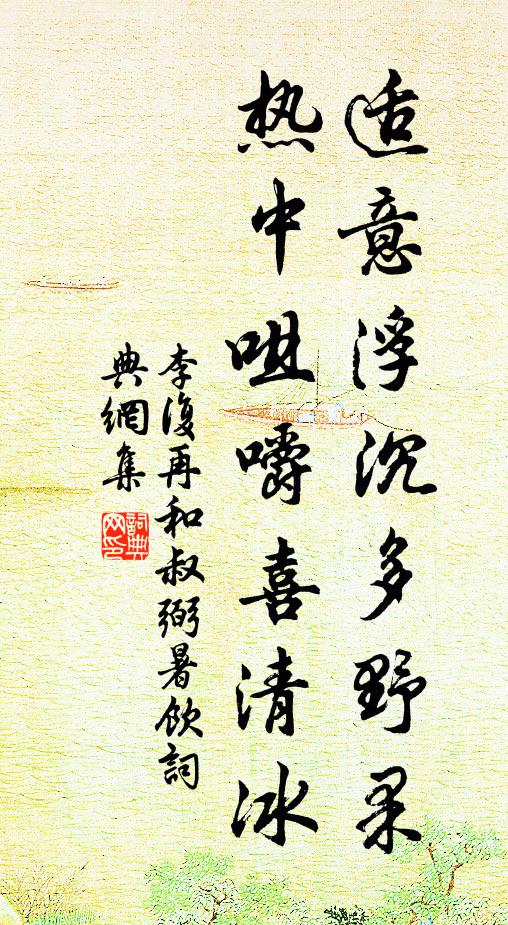 适意浮沉多野果
热中咀嚼喜清冰
李復再和叔弼暑飲詞
典網集
詞典
网印